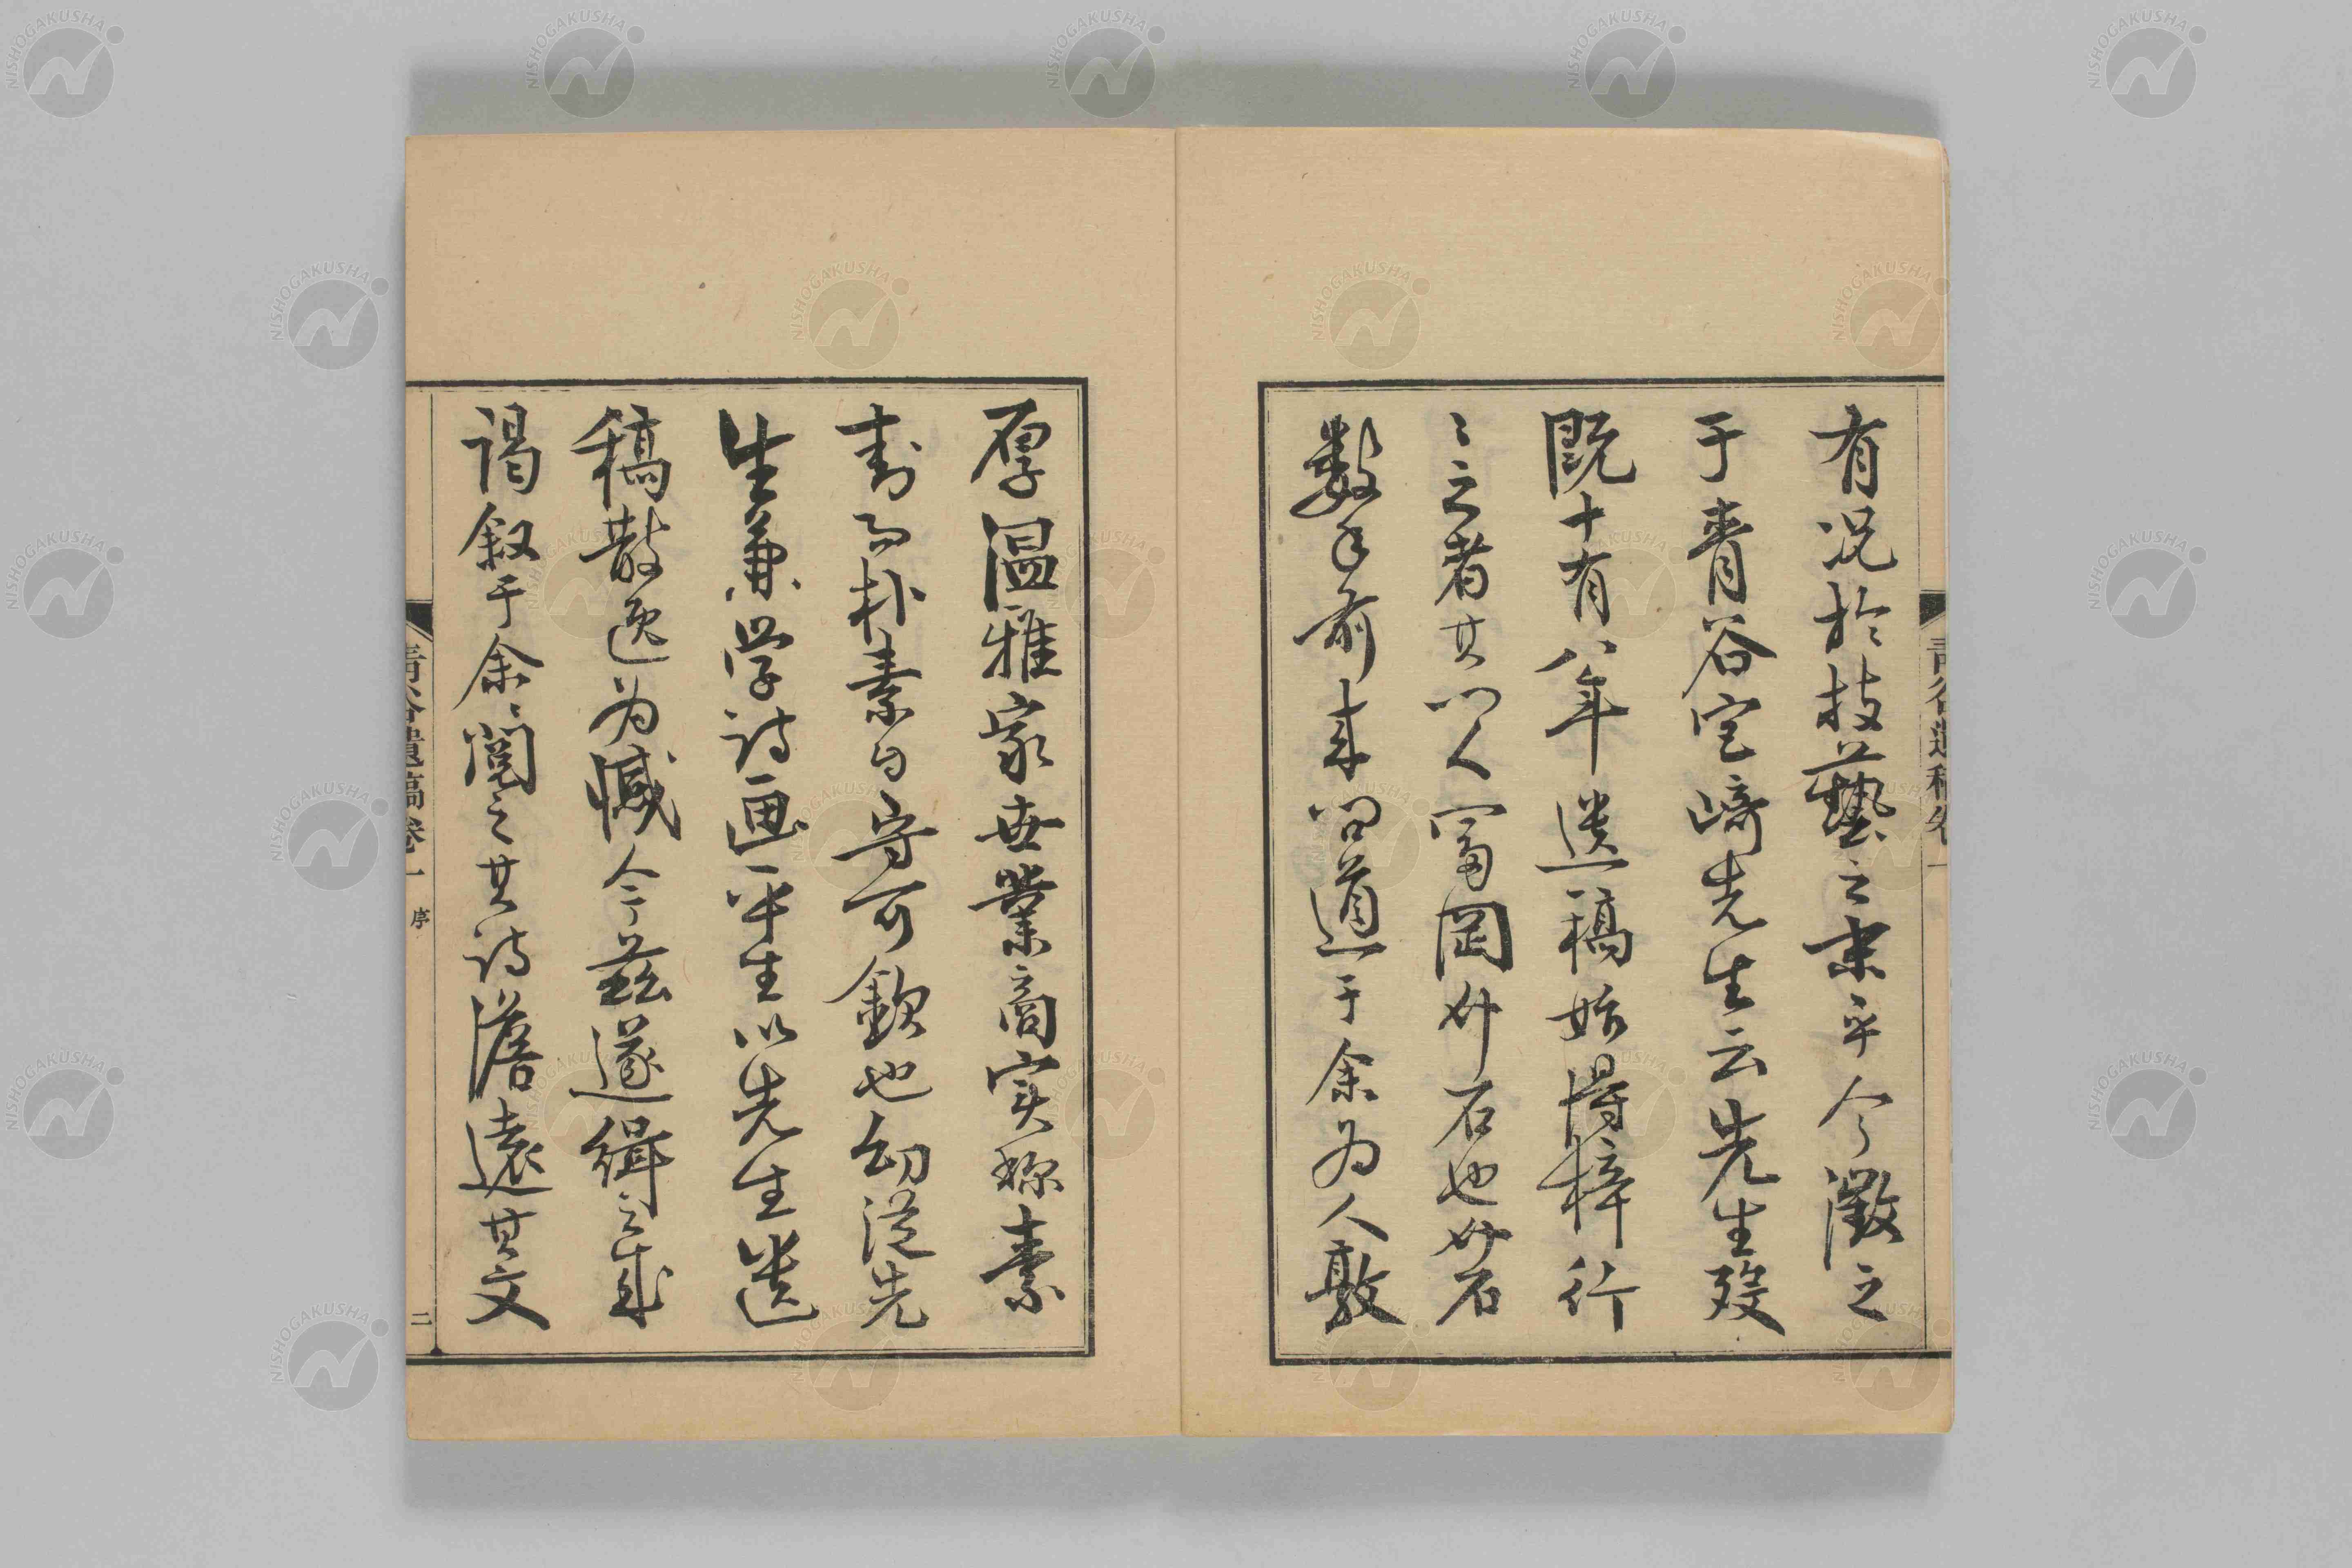 有況於技藝之末乎今徴之
于青谷宮崎先生云先生歿
既十有八年遺稿始得梓行
〻之者其門人冨岡丱石也丱石
数年前来問道于余為人敦
厚温雅家世業商実称素
封而朴素自守可欽也幼従先
生兼学詩画平生以先生遺
稿散逸為憾今茲遂緝之成
謁叙于余〻閲之其詩澹遠其文
青谷遺稿卷一
序
二
青谷遺稿卷一
NISHOGAKUSHA